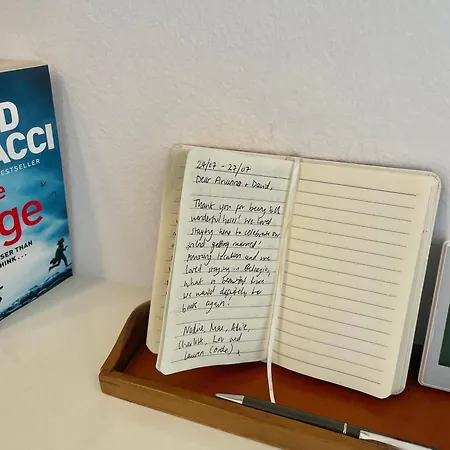 D
ACCI
BESTSELLER
e
ge
SER THAN
HINK...
24/07 - 27/07
Dear Arianna + David,
Thank you for being such
wonderful hosts! We loved
staying here to celebrate our
friend getting married!
Amazing location and we
loved staying in Bellagio,
what a beautiful town
we would definitely be
back again!
Nadia, Mae, Alice,
Charlotte, Lou and
Lauren